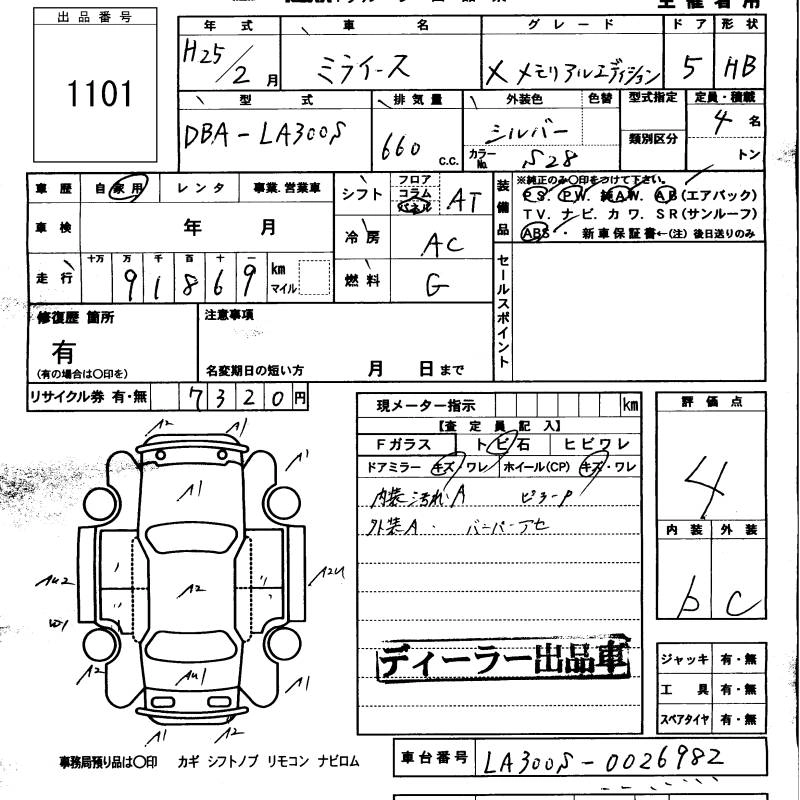 主催者用
出品番号
1101
年式 車名 グレード ドア 形状
H25/2月 ミライース X メモリアルエディション 5 HB
型式 排気量 外装色 色替 型式指定 定員・積載
DBA-LA300S 660 c.c. シルバー 類別区分 4名
カラーNo. S28 トン
車歴 自家用 レンタ 事業.営業車
シフト フロア コラム パネル AT
装備品 ※純正のみ〇印をつけて下さい。
PS. PW. 純AW. AB(エアバック)
TV. ナビ. カワ. SR(サンルーフ)
ABS・ 新車保証書←(注)後日送りのみ
車検 年 月
冷房 AC
走行 十万 万 千 百 十 一
91869 km マイル
燃料 G
セールスポイント
修復歴 箇所 注意事項
有
(有の場合は〇印を) 名変期日の短い方 月 日まで
リサイクル券 有・無 7320円
現メーター指示 km
評価点
【査定員記入】
Fガラス トビ石 ヒビワレ
ドアミラー キズ・ワレ ホイール(CP) キズ・ワレ
4
内装汚れA
外装A. バンパーアセ
内装 外装
b C
A2 A1
A1 A1
A2
AU2 A2U
W1
AU1
A2 A1
A1 A2
ディーラー出品車
ジャッキ 有・無
工具 有・無
スペアタイヤ 有・無
車台番号 LA300S-0026982
事務局預り品は〇印 カギ シフトノブ リモコン ナビロム